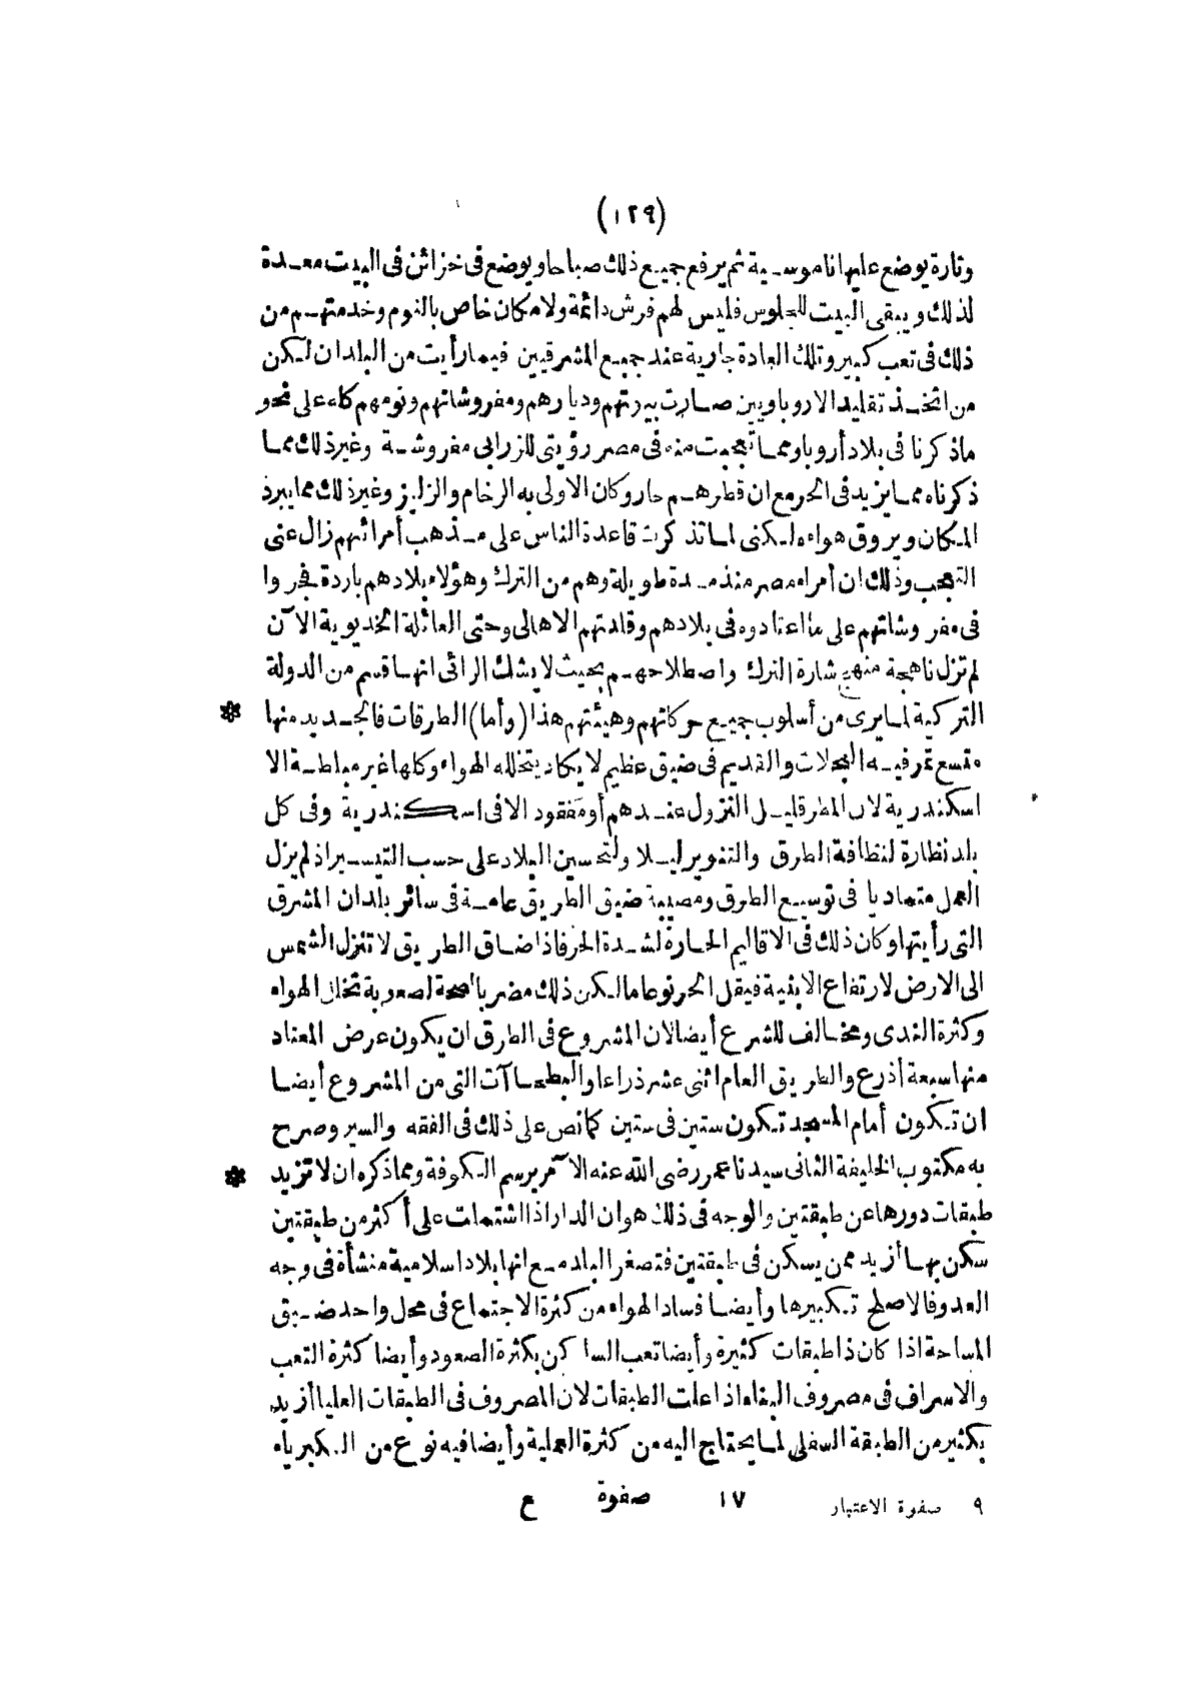 (١٢٩)
وتارة يوضع عليها ناموسية ثم يرفع جميع ذلك صباحا ويوضع فى خزائن فى البيت معدة
لذلك ويبقى البيت للجلوس فليس لهم فرش دائمة ولا مكان خاص بالنوم وخدمتهم من
ذلك فى تعب كبير وتلك العادة جارية عند جميع المشرقيين فيما رأيت من البلدان لكن
من اتخذ تقليد الاروباويين صارت بيوتهم وديارهم ومفروشاتهم ونومهم كله على نحو
ماذكرنا فى بلاد أروبا ومما تعجبت منه فى مصر رؤيتى للزرابى مفروشة وغير ذلك مما
ذكرناه مما يزيد فى الحر مع ان قطرهم حار وكان الاولى به الرخام والزليز وغير ذلك مما يبرد
المكان ويروق هواءه لكنى لما تذكرت قاعدة الناس على مذهب أمرائهم زال عنى
التعجب وذلك ان أمراء مصر منذ مدة طويلة وهم من الترك وهؤلاء بلادهم باردة فجروا
فى مفروشاتهم على ما اعتادوه فى بلادهم وقلدتهم الاهالى وحتى العائلة الخديوية الآن
لم تزل ناهجة منهج شارة الترك واصطلاحهم بحيث لا يشك الرائى انها قسم من الدولة
التركية لما يرى من أسلوب جميع حركاتهم وهيئتهم هذا (وأما) الطرقات فالجديد منها *
متسع تمر فيه العجلات والقديم فى ضيق عظيم لا يكاد يتخلله الهواء وكلها غير مبلطة الا
اسكندرية لان المطر قليل النزول عندهم أو مفقود الا فى اسكندرية وفى كل
بلد نظارة لنظافة الطرق والتنوير ليلا ولتحسين البلاد على حسب التيسير اذ لم يزل
العمل متماديا فى توسيع الطرق ومصيبة ضيق الطريق عامة فى سائر بلدان المشرق
التى رأيتها وكان ذلك فى الاقاليم الحارة لشدة الحر فاذا ضاق الطريق لا تنزل الشمس
الى الارض لارتفاع الابنية فيقل الحر نوعا ما لكن ذلك مضر بالصحة لصعوبة تخلل الهواء
وكثرة الندى ومخالف للشرع أيضا لان المشروع فى الطرق ان يكون عرض المعتاد
منها سبعة أذرع والطريق العام اثنى عشر ذراعا والبطحاآت التى من المشروع أيضا
ان تكون أمام المسجد تكون ستين فى ستين كما نص على ذلك فى الفقه والسير وصرح
به مكتوب الخليفة الثانى سيدنا عمر رضى الله عنه الآمر برسم الكوفة ومما ذكره ان لا تزيد *
طبقات دورها عن طبقتين والوجه فى ذلك هو ان الدار اذا اشتملت على أكثر من طبقتين
سكن بها أزيد ممن يسكن فى طبقتين فتصغر البلد مع انها بلاد اسلامية منشأة فى وجه
العدو فالاصلح تكبيرها وأيضا فساد الهواء من كثرة الاجتماع فى محل واحد ضيق
المساحة اذا كان ذا طبقات كثيرة وأيضا تعب الساكن بكثرة الصعود وأيضا كثرة التعب
والاسراف فى مصروف البناء اذا علت الطبقات لان المصروف فى الطبقات العليا أزيد
بكثير من الطبقة السفلى لما يحتاج اليه من كثرة العملية وأيضا فيه نوع من الكبرياء
٩ صفوة الاعتبار ١٧ صفوة ع